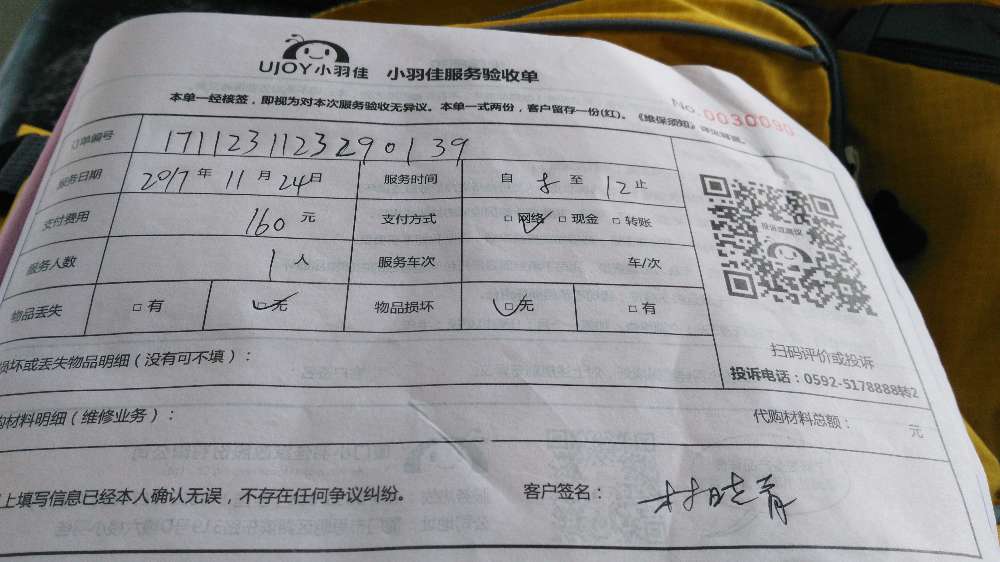 UJOY小羽佳 小羽佳服务验收单
本单一经核签，即视为对本次服务验收无异议。本单一式两份，客户留存一份(红)。《维保须知》详见背面。
No. 0030090
订单编号 171123112329013​9
服务日期 2017年11月24日 服务时间 自 8 至 12 止
支付费用 160 元 支付方式 □网络 □现金 □转账
服务人数 1 人 服务车次 车/次
物品丢失 □有 □无 物品损坏 □无 □有
投诉或建议
扫码评价或投诉
投诉电话：0592-5178888转2
损坏或丢失物品明细（没有可不填）：
购材料明细（维修业务）： 代购材料总额： 元
上填写信息已经本人确认无误，不存在任何争议纠纷。 客户签名：